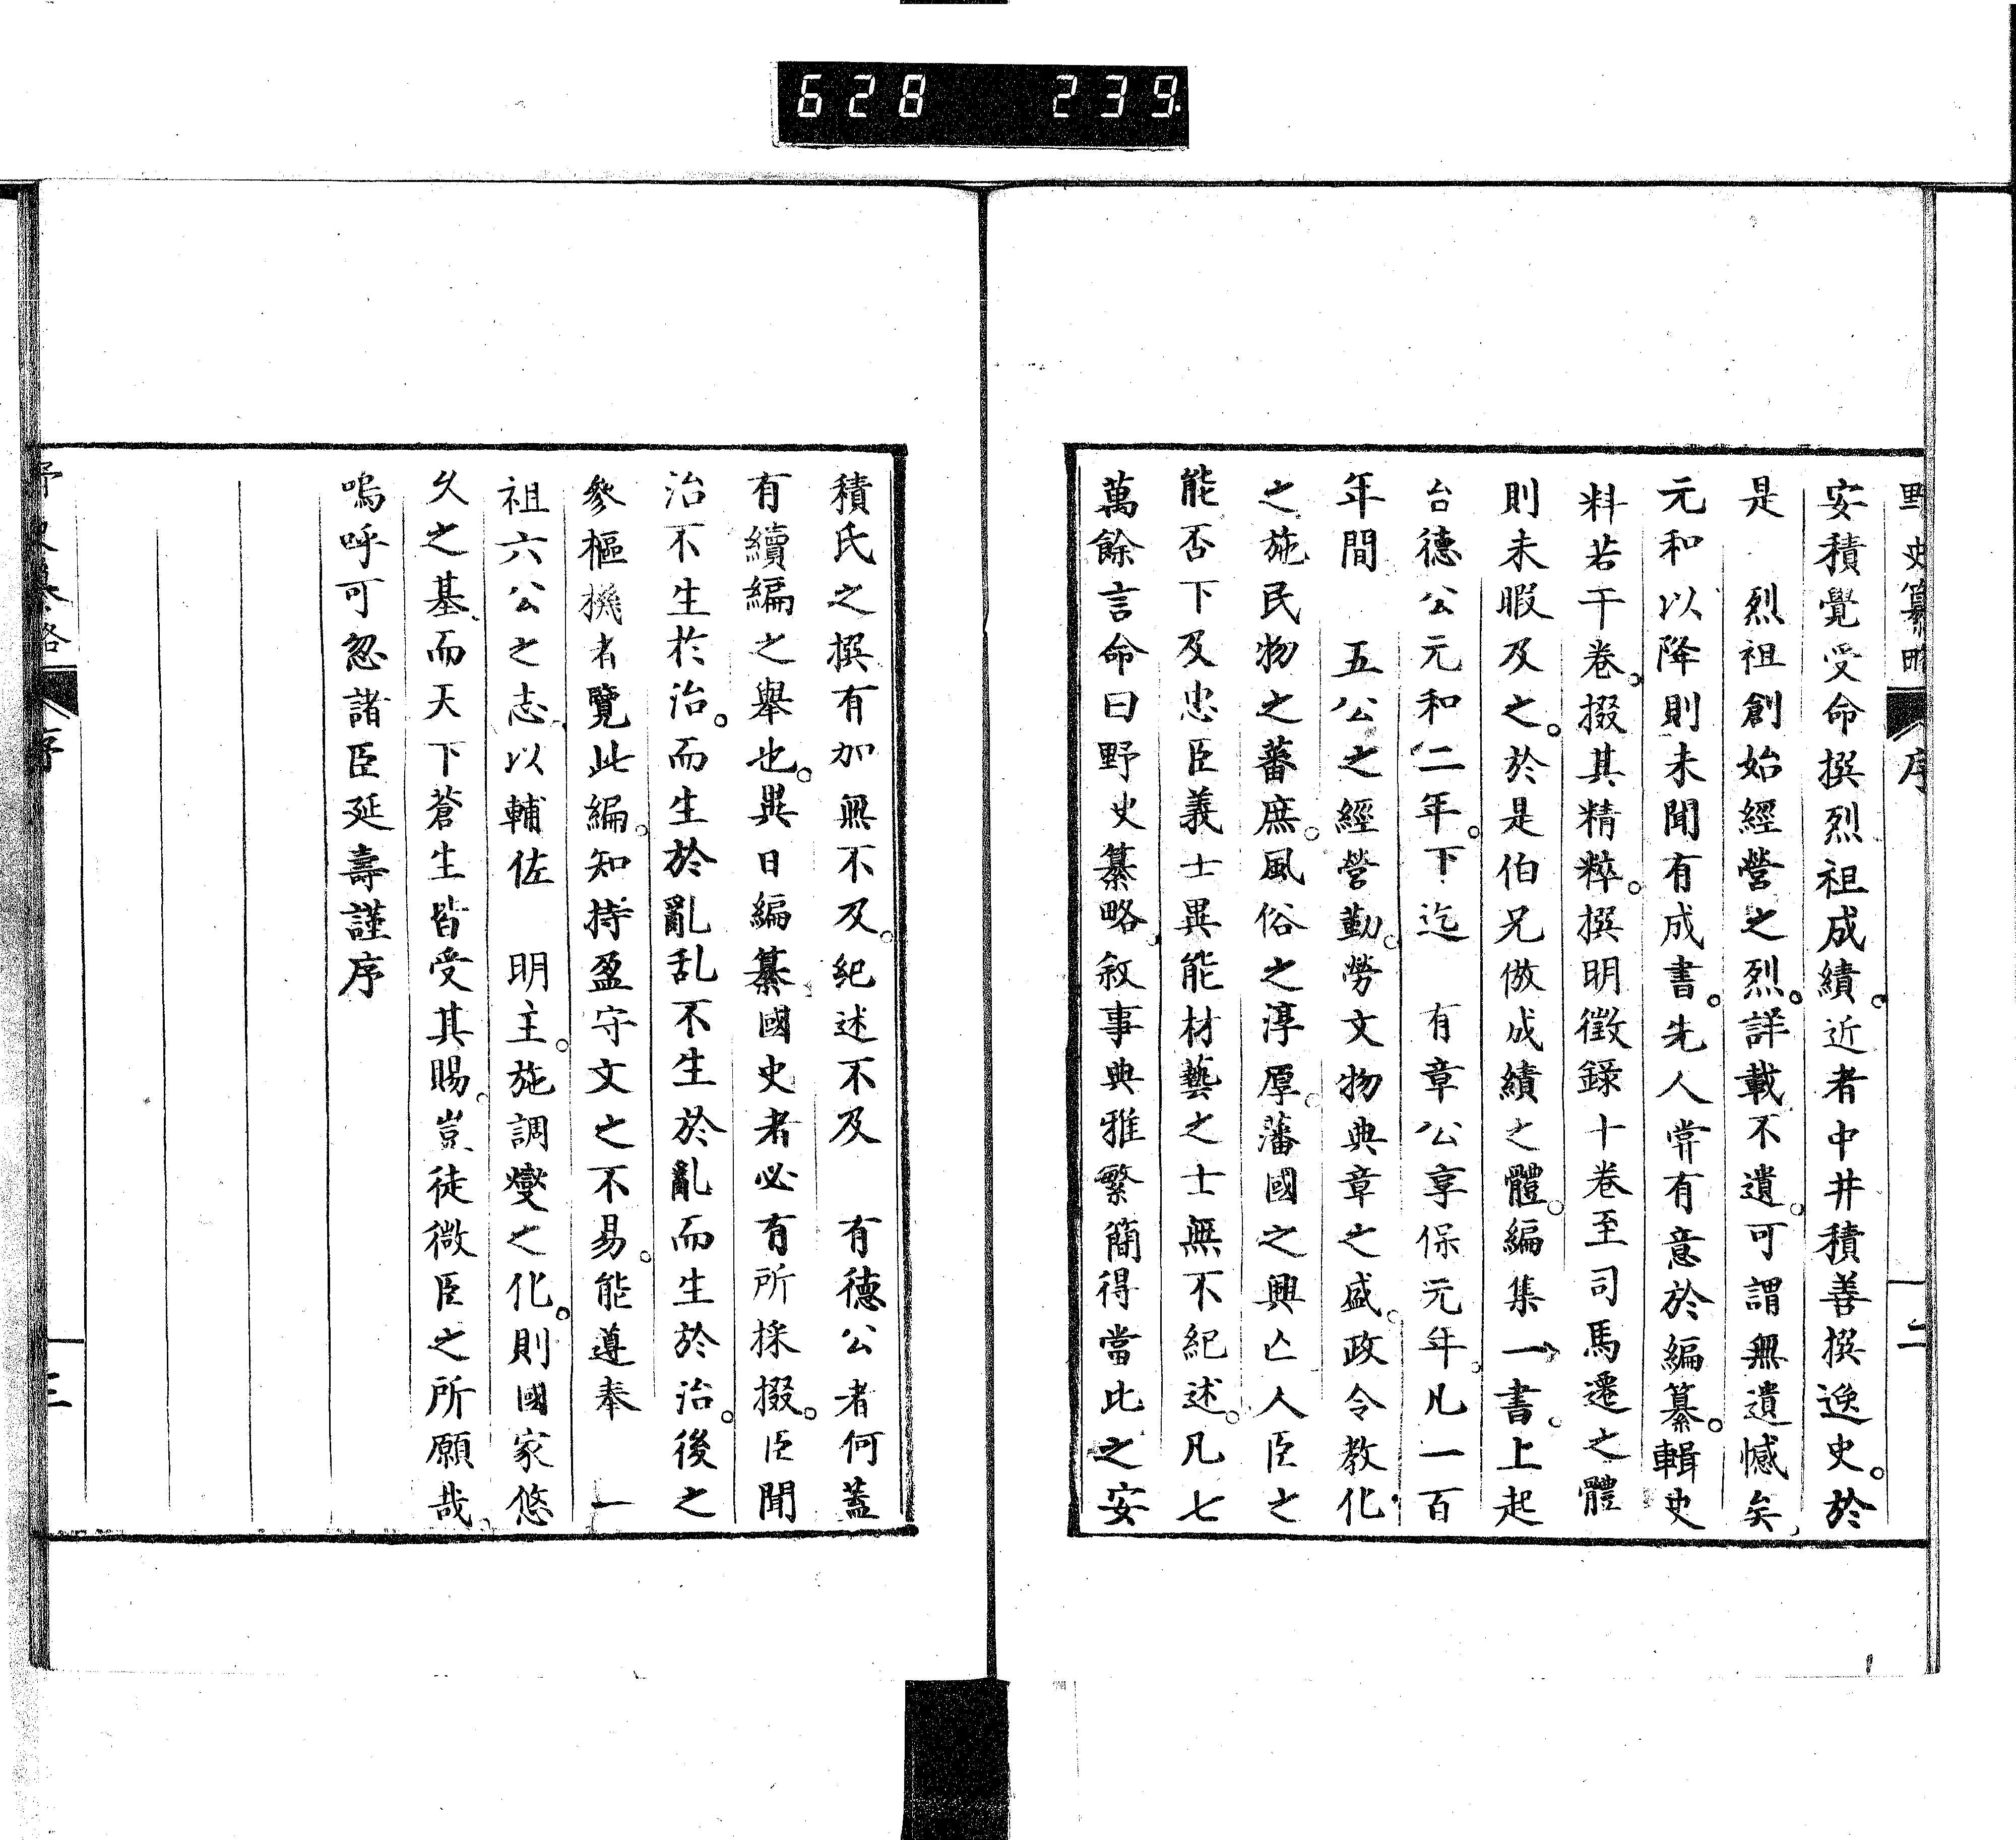 628 239.
野史纂略 序 二
安積覺受命撰烈祖成績。近者中井積善撰逸史。於
是 烈祖創始經營之烈。詳載不遺。可謂無遺憾矣、
元和以降則未聞有成書。先人嘗有意於編纂。輯史
料若干卷。掇其精粹。撰明徵錄十卷至司馬遷之體
則未暇及之。於是伯兄倣成績之體。編集一書。上起
台德公元和二年。下迄 有章公享保元年。凡一百
年間 五公之經營勤勞。文物典章之盛。政令教化
之施民物之蕃庶。風俗之淳厚。藩國之興亡人臣之
能否下及忠臣義士異能材藝之士無不紀述。凡七
萬餘言命曰野史纂略、叙事典雅繁簡得當此之安
積氏之撰有加無不及。紀述不及 有德公者何蓋
有續編之舉也。異日編纂國史者必有所採掇。臣聞
治不生於治。而生於亂乱不生於亂而生於治。後之
參樞機者覽此編。知持盈守文之不易。能遵奉 一
祖六公之志、以輔佐 明主。施調燮之化。則國家悠
久之基、而天下蒼生皆受其賜。豈徒微臣之所願哉、
嗚呼可忽諸臣延壽謹序
野史纂略 序 三